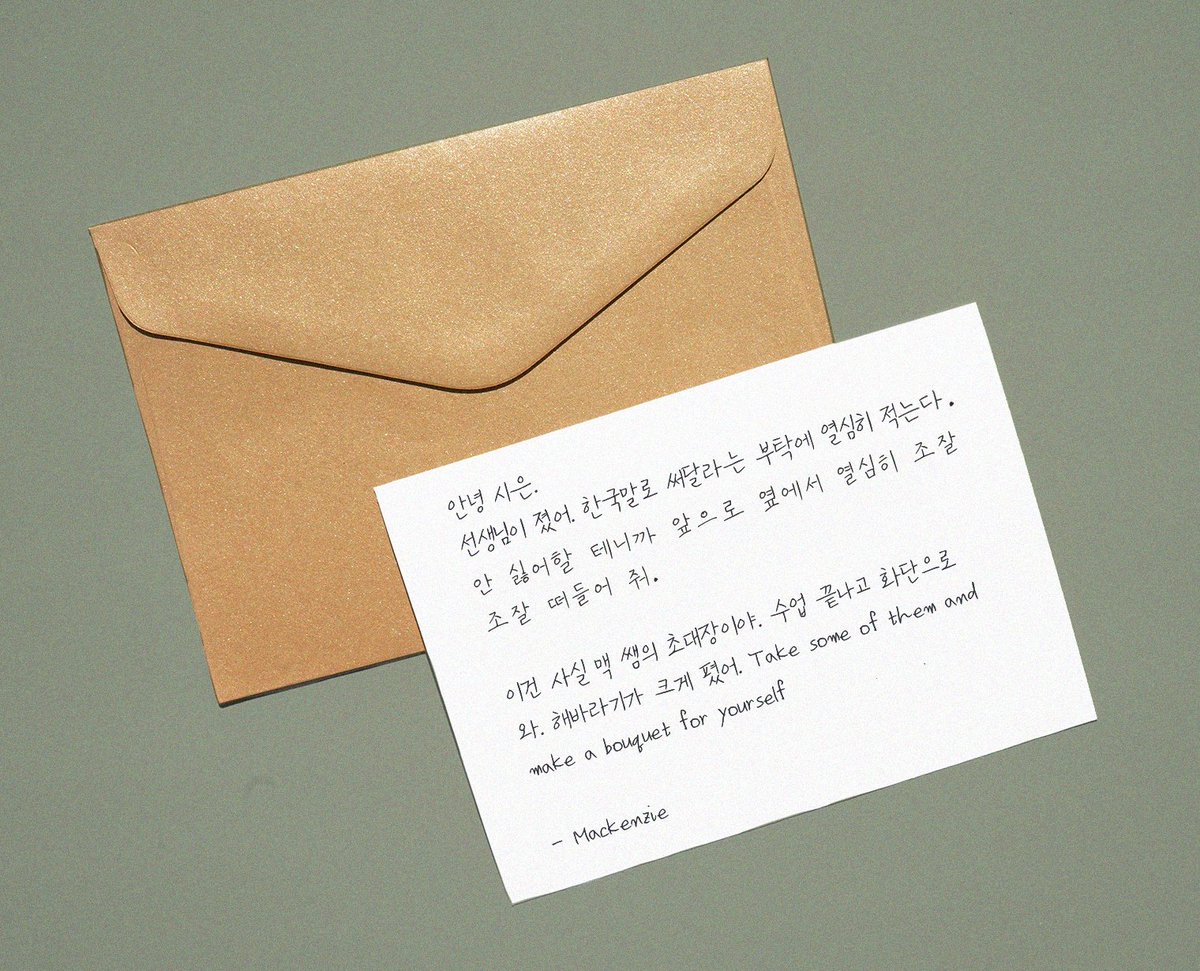 안녕 시은.
선생님이 졌어. 한국말로 써달라는 부탁에 열심히 적는다.
안 싫어할 테니까 앞으로 옆에서 열심히 조잘
조잘 떠들어 줘.
이건 사실 맥 쌤의 초대장이야. 수업 끝나고 화단으로
와. 해바라기가 크게 폈어. Take some of them and
make a bouquet for yourself
- Mackenzie